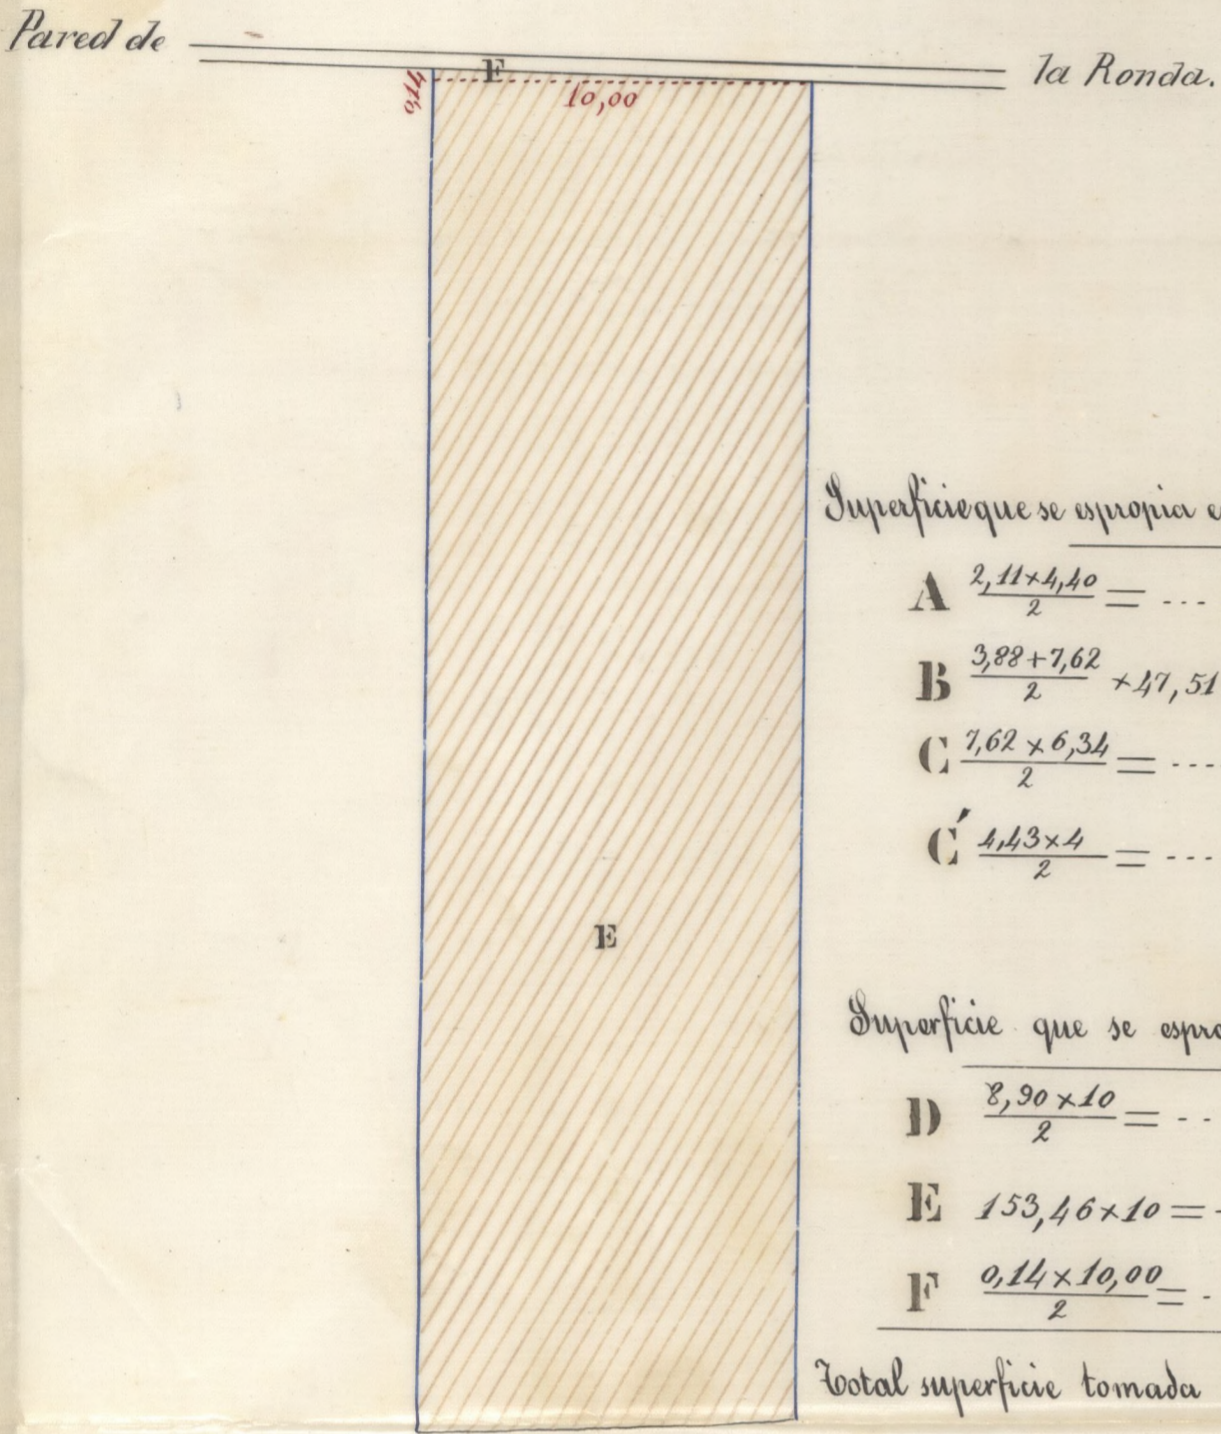 Pared de la Ronda.
F
0,14
10,00
Superficie que se espropia
A 2,11×4,40/2 = ...
B 3,88+7,62/2 ×47,51
C 7,62×6,34/2 = ...
C' 4,43×4/2 = ...
E
Superficie que se espro
D 8,90×10/2 = ..
E 153,46×10 =
F 0,14×10,00/2 = .
Total superficie tomada